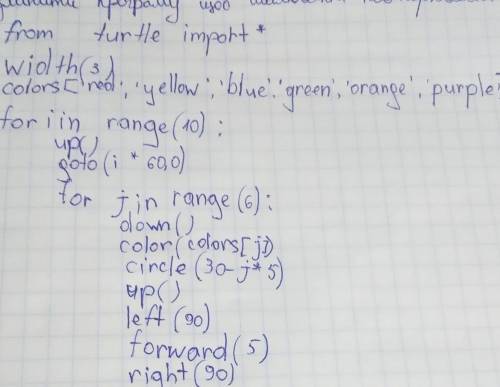 програму щоб
from turtle import *
width(3)
colors['red', 'yellow', 'blue', 'green', 'orange', 'purple'
for i in range(10):
up()
goto(i * 60,0)
for j in range(6):
down()
color(colors[j])
circle(30-j*5)
up()
left(90)
forward(5)
right(90)